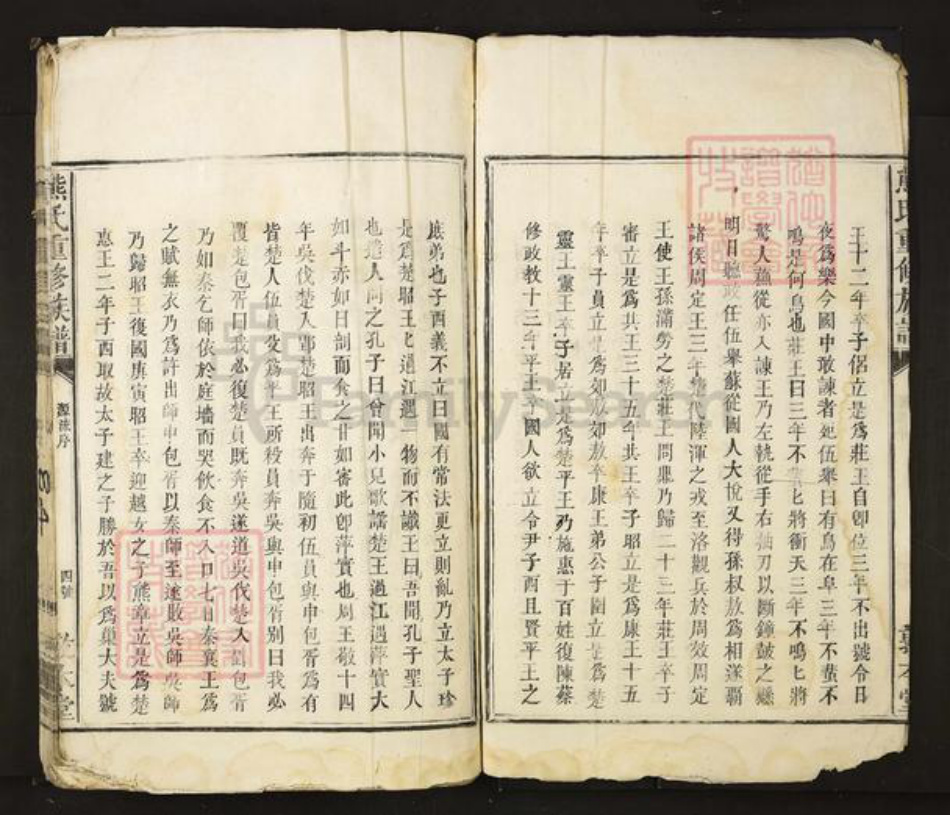 王十二年卒子侶立是爲莊王自卽位三年不出號令日
夜爲樂今國中敢諫者死伍舉曰有鳥在阜三年不蜚不
鳴是何鳥也莊王曰三年不蜚匕將衝天三年不鳴匕將
驚人蘓從亦入諫王乃左執從手右抽刀以斷鐘鼓之懸
明日聽政任伍舉蘇從國人大悅又得孫叔敖爲相遂霸
諸侯周定王三年楚代陸渾之戎至洛觀兵於周效周定
王使王孫滿勞之楚莊王問鼎乃歸二十三年莊王卒子
審立是爲共王三十五年共王卒子昭立是爲康王十五
年卒子員立是爲郟敖郟敖卒康王弟公子圍立是爲楚
靈王靈王卒子居立是爲楚平王乃施惠于百姓復陳蔡
修政教十三年平王卒國人欲立令尹子酉且賢平王之
庶弟也子酉義不立曰國有常法更立則亂乃立太子珍
是爲楚昭王匕過江遇一物而不識王曰吾聞孔子聖人
也遣人問之孔子曰曾聞小兒歌謠楚王過江遇萍實大
如斗赤如日剖而食之甘如審此卽萍實也周王敬十四
年吳伐楚入郢楚昭王出奔于隨初伍員與申包胥爲有
皆楚人伍員父爲平王所殺員奔吳與申包胥别曰我必
覆楚包胥曰我必復楚員既奔吳遂道吳伐楚入郢包胥
乃如秦乞師依於庭墻而哭飲食不入口七日秦襄王爲
之賦無衣乃爲許出師申包胥以秦師至遂敗吳師吳師
乃歸昭王復國庚寅昭王卒迎越女之子熊章立是爲楚
惠王二年子酉取故太子建之子勝於吾以爲巢大夫號
熊氏重修族譜
源流序
四號
熊氏重修族譜